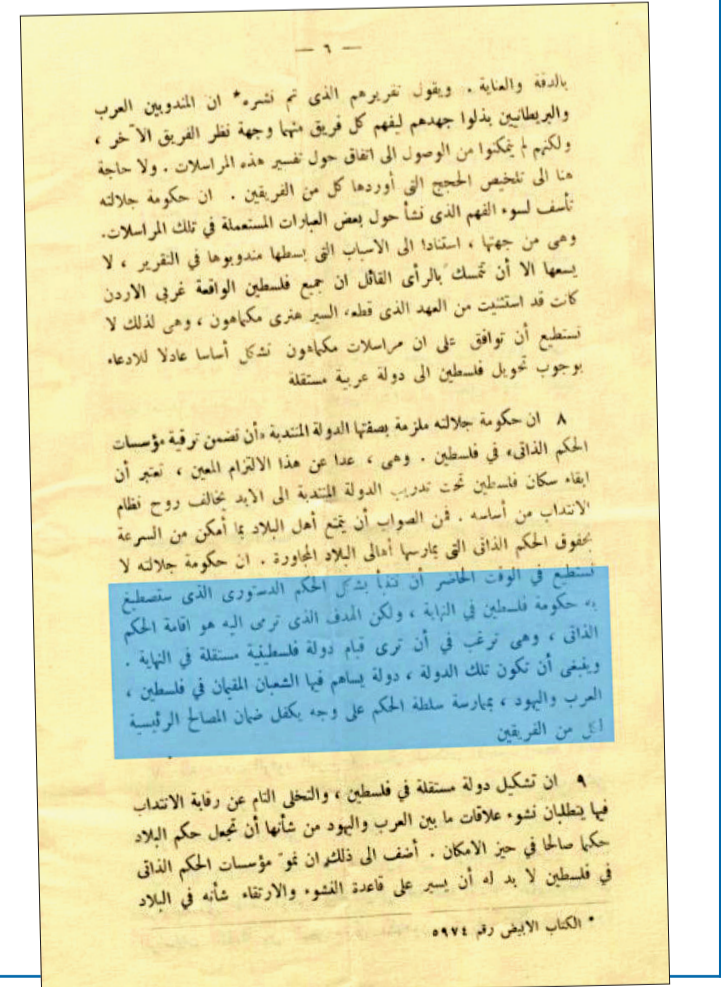 — ٦ —
بالدقة والعناية . ويقول تقريرهم الذى تم نشره* ان المندوبين العرب
والبريطانيين بذلوا جهدهم ليفهم كل فريق منهما وجهة نظر الفريق الآخر ،
ولكنهم لم يتمكنوا من الوصول الى اتفاق حول تفسير هذه المراسلات . ولا حاجة
هنا الى تلخيص الحجج التى أوردها كل من الفريقين . ان حكومة جلالته
تأسف لسوء الفهم الذى نشأ حول بعض العبارات المستعملة في تلك المراسلات.
وهى من جهتها ، استنادا الى الاسباب التى بسطها مندوبوها في التقرير ، لا
يسعها الا أن تتمسك بالرأى القائل ان جميع فلسطين الواقعة غربي الاردن
كانت قد استثنيت من العهد الذى قطعه السير هنرى مكماهون ، وهى لذلك لا
تستطيع أن توافق على ان مراسلات مكماهون تشكل أساسا عادلا للادعاء
بوجوب تحويل فلسطين الى دولة عربية مستقلة
٨ ان حكومة جلالته ملزمة بصفتها الدولة المنتدبة «أن تضمن ترقية مؤسسات
الحكم الذاتى» في فلسطين . وهى ، عدا عن هذا الالتزام المعين ، تعتبر أن
ابقاء سكان فلسطين تحت تدريب الدولة المنتدبة الى الابد يخالف روح نظام
الانتداب من أساسه . فمن الصواب أن يتمتع أهل البلاد بما أمكن من السرعة
بحقوق الحكم الذاتى التى يمارسها أهالى البلاد المجاورة . ان حكومة جلالته لا
تستطيع في الوقت الحاضر أن تتنبأ بشكل الحكم الدستورى الذى ستصطبغ
به حكومة فلسطين في النهاية ، ولكن الهدف الذى ترمى اليه هو اقامة الحكم
الذاتى ، وهى ترغب في أن ترى قيام دولة فلسطينية مستقلة في النهاية .
وينبغى أن تكون تلك الدولة ، دولة يساهم فيها الشعبان المقيمان في فلسطين ،
العرب واليهود ، بممارسة سلطة الحكم على وجه يكفل ضمان المصالح الرئيسية
لكل من الفريقين
٩ ان تشكيل دولة مستقلة في فلسطين ، والتخلى التام عن رقابة الانتداب
فيها يتطلبان نشوء علاقات ما بين العرب واليهود من شأنها أن تجعل حكم البلاد
حكما صالحا في حيز الامكان . أضف الى ذلك ان نمو مؤسسات الحكم الذاتى
في فلسطين لا بد له أن يسير على قاعدة النشوء والارتقاء شأنه في البلاد
* الكتاب الابيض رقم ٥٩٧٤